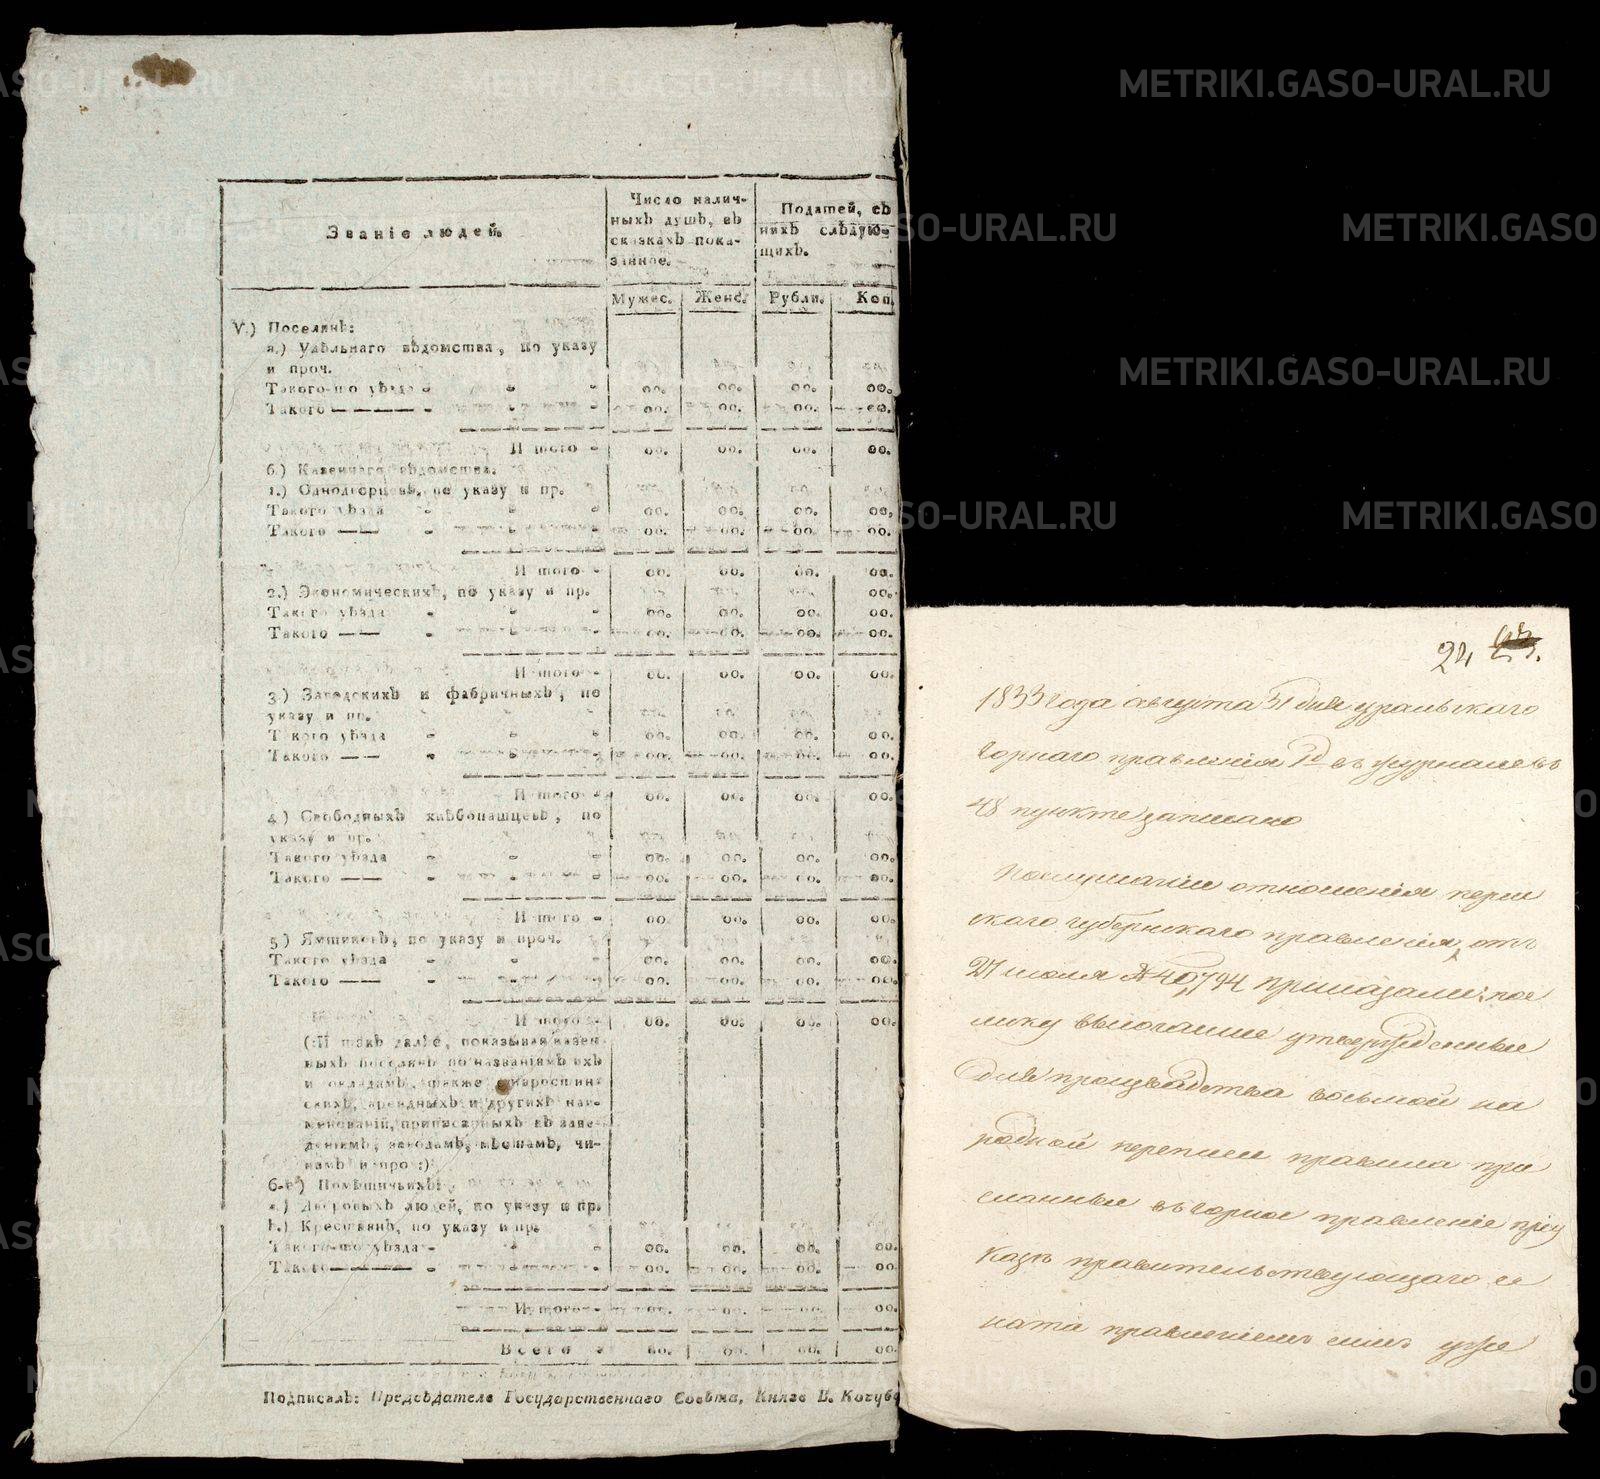 METRIKI.GASO-URAL.RU
Званіе людей.
Число налич-
ныхъ душъ, въ
сказкахъ пока-
занное.
Податей, съ
нихъ слѣдую-
щихъ.
Мужес. Женс. Рубли. Коп.
V.) Поселянъ:
а.) Удѣльнаго вѣдомства, по указу
и проч.
Такого-то уѣзда - - - оо. оо. оо. оо.
Такого — — — - - - оо. оо. оо. оо.
Итого - оо. оо. оо. оо.
б.) Казеннаго вѣдомства.
1.) Однодворцевъ, по указу и пр.
Такого уѣзда - - - оо. оо. оо. оо.
Такого — — - - - оо. оо. оо. оо.
Итого - оо. оо. оо. оо.
2.) Экономическихъ, по указу и пр. оо.
Такого уѣзда - - - оо. оо. оо. оо.
Такого — — - - - оо. оо. оо. оо.
Итого - оо. оо. оо. оо.
3.) Заводскихъ и фабричныхъ, по
указу и пр.
Такого уѣзда - - - оо. оо. оо. оо.
Такого — — - - - оо. оо. оо. оо.
Итого - оо. оо. оо. оо.
4.) Свободныхъ хлѣбопашцевъ, по
указу и пр.
Такого уѣзда - - - оо. оо. оо. оо.
Такого — — - - - оо. оо. оо. оо.
Итого - оо. оо. оо. оо.
5.) Ямщиковъ, по указу и проч.
Такого уѣзда - - - оо. оо. оо. оо.
Такого — — - - - оо. оо. оо. оо.
Итого - оо. оо. оо. оо.
(:И такъ далѣе, показывая казен-
ныхъ поселянъ по названіямъ ихъ
и окладамъ, также старостин-
скихъ, арендныхъ и другихъ наи-
менованій, приписанныхъ къ заве-
деніямъ, заводамъ, мѣстамъ, чи-
намъ и проч:)
6-е) Помѣщичьихъ:
а.) Дворовыхъ людей, по указу и пр.
б.) Крестьянъ, по указу и пр.
Такого-то уѣзда - - - оо. оо. оо. оо.
Такого — — — - - - оо. оо. оо. оо.
Итого - оо. оо. оо. оо.
Всего - оо. оо. оо. оо.
Подписалъ: Предсѣдатель Государственнаго Совѣта, Князь В. Кочубе
24
1833 года августа 31 дня уральскаго
горнаго правленія въ журнале въ
48 пункте записано
Послушаніи отношенія перм
скаго губернскаго правленія, отъ
27 июля № 40,794 приказали: пое
лику высочайше утвержденные
для производства восьмой на
родной переписи правила при
сланные въ горное правленіе при у
казѣ правительствующаго се
ната правленіемъ симъ уже